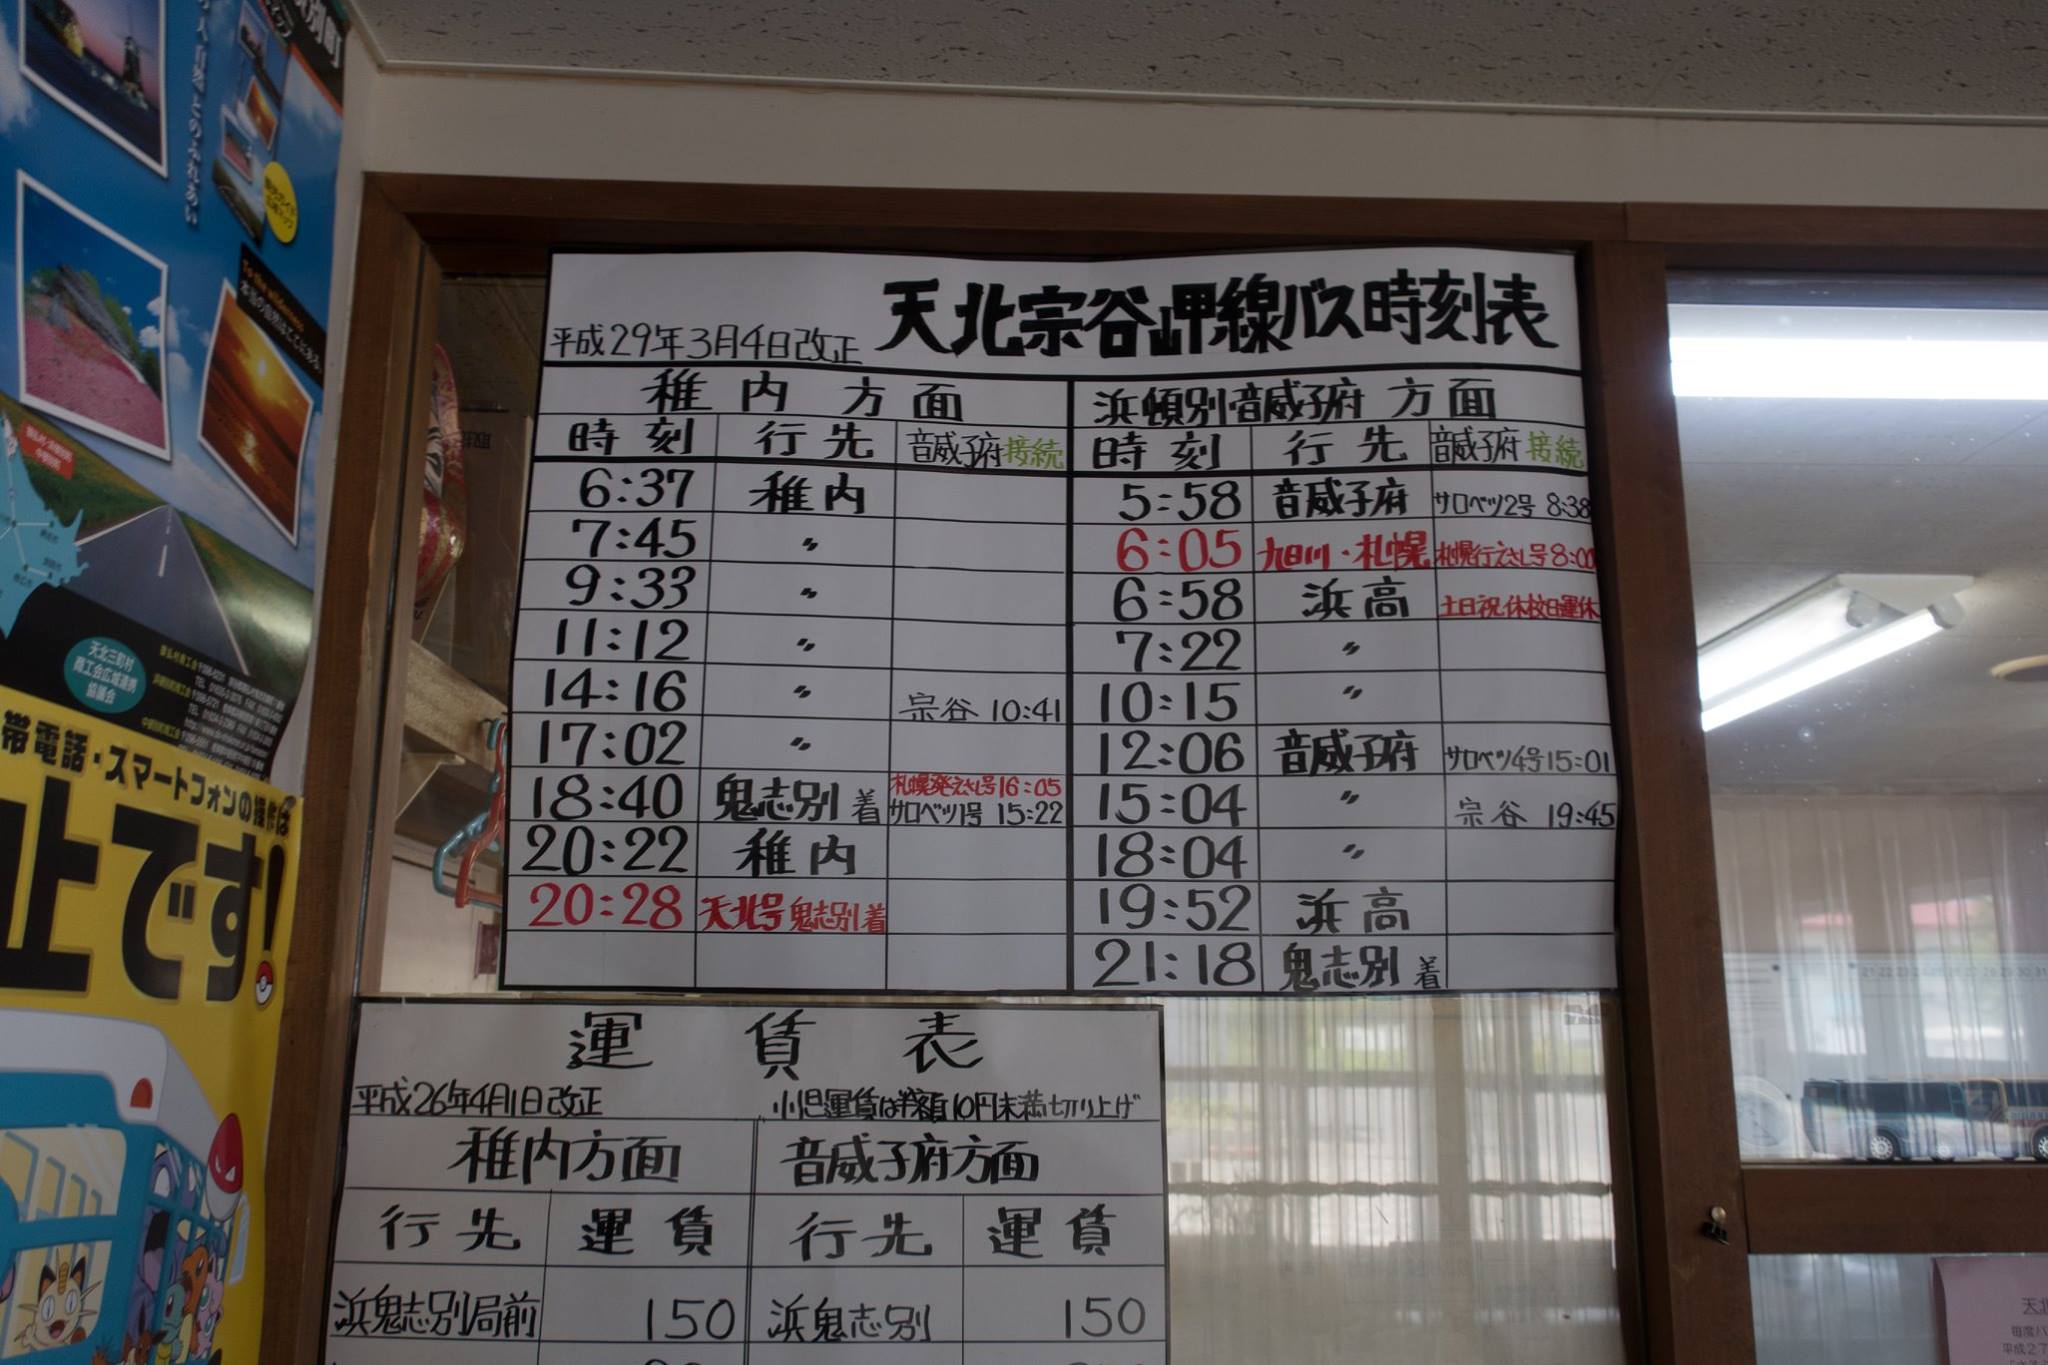 天北宗谷岬線バス時刻表
平成29年3月4日改正
稚内方面 浜頓別・音威子府方面
時刻 行先 音威子府接続 時刻 行先 音威子府接続
6:37 稚内 5:58 音威子府 サロベツ2号 8:38
7:45 〃 6:05 旭川・札幌 札幌行えさし号 8:00
9:33 〃 6:58 浜高 土日祝、休校日運休
11:12 〃 7:22 〃
14:16 〃 宗谷 10:41 10:15 〃
17:02 〃 12:06 音威子府 サロベツ4号 15:01
18:40 鬼志別着 札幌発えさし号16:05 サロベツ1号 15:22 15:04 〃 宗谷 19:45
20:22 稚内 18:04 〃
20:28 天北号 鬼志別着 19:52 浜高
21:18 鬼志別着
運賃表
平成26年4月1日改正 小児運賃は半額10円未満切り上げ
稚内方面 音威子府方面
行先 運賃 行先 運賃
浜鬼志別局前 150 浜鬼志別 150
とのふれあい
To the wilderness
本当の自然はここにある。
天北三町村
商工会広域連携
協議会
帯電話・スマートフォンの操作は
止です!